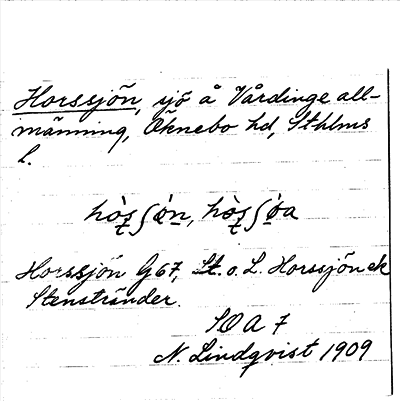 Horssjön, sjö å Vårdinge all-
männing, Öknebo hd, Sthlms
l.
Horssjön G67, St. o. L. Horssjön ek
Stenstränder.
SOA 7
N. Lindqvist 1909